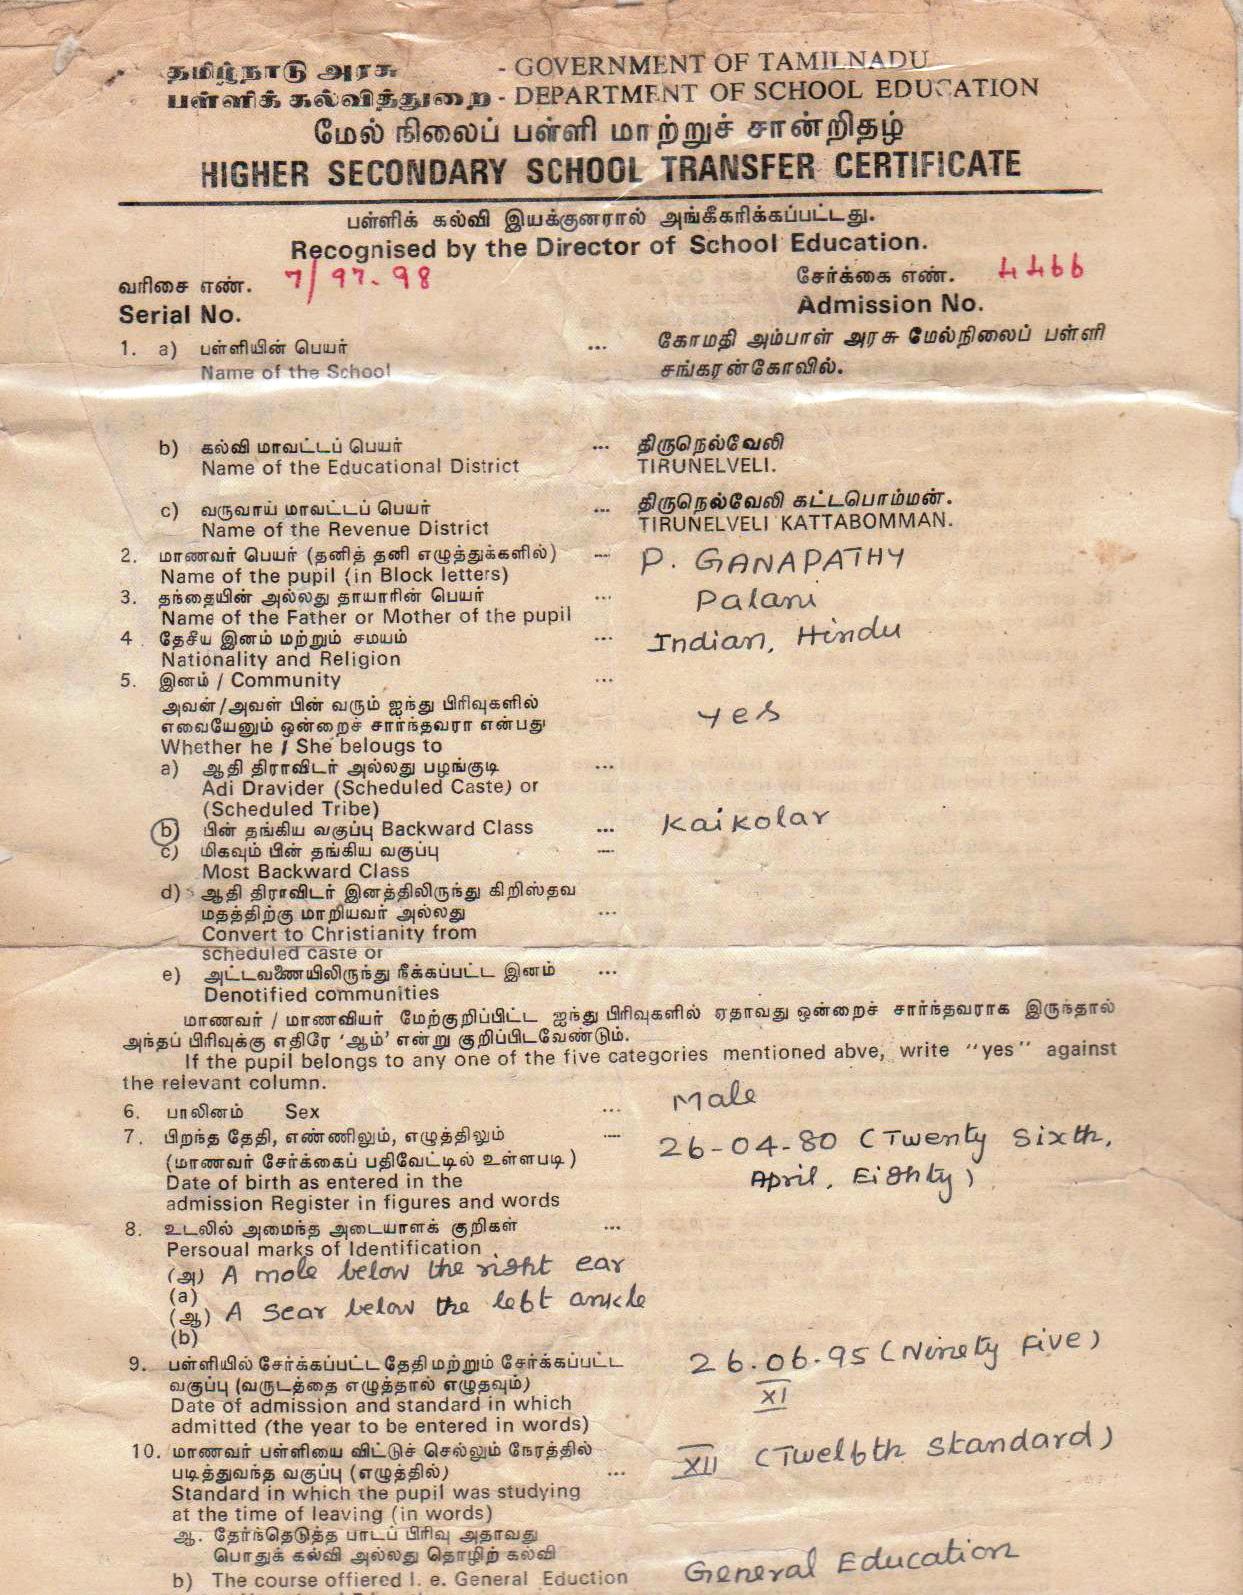 தமிழ்நாடு அரசு - GOVERNMENT OF TAMILNADU
பள்ளிக் கல்வித்துறை - DEPARTMENT OF SCHOOL EDUCATION
மேல் நிலைப் பள்ளி மாற்றுச் சான்றிதழ்
HIGHER SECONDARY SCHOOL TRANSFER CERTIFICATE
பள்ளிக் கல்வி இயக்குனரால் அங்கீகரிக்கப்பட்டது.
Recognised by the Director of School Education.
வரிசை எண். 7/97-98 சேர்க்கை எண். 4466
Serial No. Admission No.
1. a) பள்ளியின் பெயர் ... கோமதி அம்பாள் அரசு மேல்நிலைப் பள்ளி
Name of the School சங்கரன்கோவில்.
b) கல்வி மாவட்டப் பெயர் ... திருநெல்வேலி
Name of the Educational District TIRUNELVELI.
c) வருவாய் மாவட்டப் பெயர் ... திருநெல்வேலி கட்டபொம்மன்.
Name of the Revenue District TIRUNELVELI KATTABOMMAN.
2. மாணவர் பெயர் (தனித் தனி எழுத்துக்களில்) ... P. GANAPATHY
Name of the pupil (in Block letters)
3. தந்தையின் அல்லது தாயாரின் பெயர் ... Palani
Name of the Father or Mother of the pupil
4. தேசீய இனம் மற்றும் சமயம் ... Indian, Hindu
Nationality and Religion
5. இனம் / Community ...
அவன்/அவள் பின் வரும் ஐந்து பிரிவுகளில்
எவையேனும் ஒன்றைச் சார்ந்தவரா என்பது yes
Whether he / She belougs to
a) ஆதி திராவிடர் அல்லது பழங்குடி ...
Adi Dravider (Scheduled Caste) or
(Scheduled Tribe)
b) பின் தங்கிய வகுப்பு Backward Class ... Kaikolar
c) மிகவும் பின் தங்கிய வகுப்பு ...
Most Backward Class
d) ஆதி திராவிடர் இனத்திலிருந்து கிறிஸ்தவ
மதத்திற்கு மாறியவர் அல்லது ...
Convert to Christianity from
scheduled caste or
e) அட்டவணையிலிருந்து நீக்கப்பட்ட இனம் ...
Denotified communities
மாணவர் / மாணவியர் மேற்குறிப்பிட்ட ஐந்து பிரிவுகளில் ஏதாவது ஒன்றைச் சார்ந்தவராக இருந்தால்
அந்தப் பிரிவுக்கு எதிரே 'ஆம்' என்று குறிப்பிடவேண்டும்.
If the pupil belongs to any one of the five categories mentioned abve, write "yes" against
the relevant column.
6. பாலினம் Sex ... Male
7. பிறந்த தேதி, எண்ணிலும், எழுத்திலும் ... 26-04-80 (Twenty Sixth,
(மாணவர் சேர்க்கைப் பதிவேட்டில் உள்ளபடி) April, Eighty)
Date of birth as entered in the
admission Register in figures and words
8. உடலில் அமைந்த அடையாளக் குறிகள் ...
Persoual marks of Identification
(அ) A mole below the right ear
(a)
(ஆ) A scar below the left ankle
(b)
9. பள்ளியில் சேர்க்கப்பட்ட தேதி மற்றும் சேர்க்கப்பட்ட 26.06.95 (Ninety Five)
வகுப்பு (வருடத்தை எழுத்தால் எழுதவும்) XI
Date of admission and standard in which
admitted (the year to be entered in words)
10. மாணவர் பள்ளியை விட்டுச் செல்லும் நேரத்தில் XII (Twelfth Standard)
படித்துவந்த வகுப்பு (எழுத்தில்) ...
Standard in which the pupil was studying
at the time of leaving (in words)
ஆ. தேர்ந்தெடுத்த பாடப் பிரிவு அதாவது
பொதுக் கல்வி அல்லது தொழிற் கல்வி General Education
b) The course offiered I. e. General Eduction